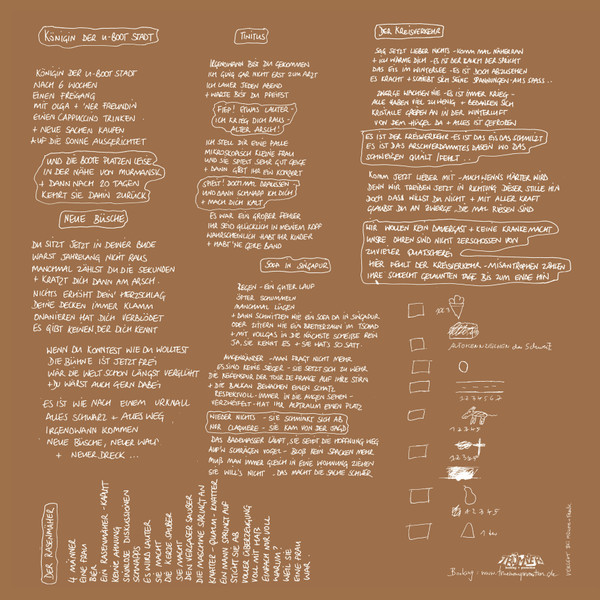 KÖNIGIN DER U-BOOT STADT
KÖNIGIN DER U-BOOT STADT
NACH 6 WOCHEN
EINEN FREIGANG
MIT OLGA + 'NER FREUNDIN
EINEN CAPPUCCINO TRINKEN
+ NEUE SACHEN KAUFEN
AUF DIE SONNE AUSGERICHTET
UND DIE BOOTE PLATZEN LEISE
IN DER NÄHE VON MURMANSK
+ DANN NACH 20 TAGEN
KEHRST DU DAHIN ZURÜCK
NEUE BÜSCHE
DU SITZT JETZT IN DEINER BUDE
WARST JAHRELANG NICHT RAUS
MANCHMAL ZÄHLST DU DIE SEKUNDEN
+ KRATZT DICH DANN AM ARSCH.
NICHTS ERHÖHT DEIN' HERZSCHLAG
DEINE DECKEN IMMER KLAMM
ONANIEREN HAT DICH VERBLÖDET
ES GIBT KEINEN, DER DICH KENNT
WENN DU KÖNNTEST WIE DU WOLLTEST
DIE BÜHNE IST JETZT FREI
WÄR DIE WELT SCHON LÄNGST VERGLÜHT
+ DU WÄRST AUCH GERN DABEI
ES IST WIE NACH EINEM URKNALL
ALLES SCHWARZ + ALLES WEG
IRGENDWANN KOMMEN
NEUE BÜSCHE, NEUER WALD
+ NEUER DRECK ...
DER RASENMÄHER
4 MÄNNER
EINE FRAU
BIER
EIN RASENMÄHER - KAPUTT
KEINE AHNUNG
SINNLOSE DISKUSSIONEN
SCHNAPS
ES WIRD LAUTER
SIE MACHT
DIE KERZE SAUBER
SIE MACHT
DEN VERGASER SAUBER
DIE MASCHINE SPRINGT AN
KNATTER - QUALM - KNATTER
EIN MANN SPRINGT AUF
STICHT SIE AB
VOLLER ÜBERZEUGUNG
VOLL MIT HASS
EINFACH NUR VOLL
WARUM?
WEIL SIE
EINE FRAU
WAR.
TINITUS
IRGENDWANN BIST DU GEKOMMEN
ICH GING GAR NICHT ERST ZUM ARZT
ICH LAUER JEDEN ABEND
+ WARTE BIS DU PFEIFST
FIEP! ETWAS LAUTER -
ICH KRIEG DICH RAUS -
ALTER ARSCH!
ICH STELL DIR EINE FALLE
MIKROSKOPISCH KLEINE FRAU
UND SIE SPIELT SEHR GUT GEIGE
+ DANN GIBT IHR EIN KONZERT
SPIELT! DOCH MAL DRAUSSEN -
UND DANN SCHNAPP ICH DICH
+ MACH DICH KALT
ES WAR EIN GROSSER FEHLER
IHR SEID GLÜCKLICH IN MEINEM KOPF
WAHRSCHEINLICH HABT IHR KINDER
+ HABT 'NE GEILE BAND
SODA IN SINGAPUR
REGEN - EIN GUTER LAUF
ÖFTER SCHUMMELN
MANCHMAL LÜGEN
+ DANN SCHWITZEN WIE EIN SODA IN SINGAPUR
ODER ZITTERN WIE EIN BRETTERZAUN IM TSCHAD
+ MIT VOLLGAS IN DIE NÄCHSTE SCHEISSE REIN
JA, SIE KENNT ES + SIE HAT'S SO SATT
ANEINANDER - MAN FRAGT NICHT MEHR
ES SIND KEINE SIEGER - SIE SETZT SICH ZU WEHR
DIE BERGZIEGE DER TOUR DE FRANCE AUF IHRE STIRN
+ DIE BALKAN BEWACHEN EINEN SCHATZ
RESPEKTVOLL - IMMER IN DIE AUGEN SEHEN -
VERZWEIFELT - HAT IHR ALPTRAUM EINEN PLATZ
WIEDER NICHTS - SIE SCHMINKT SICH AB
NUR CLAQUERE - SIE KAM VON DER JAGD
DAS BADEWASSER LÄUFT, SIE SETZT DIE HOFFNUNG WEG
AUF'N SCHRÄGEN VOGEL - BLOSS KEIN SPACKEN MEHR
MUSS MAN IMMER GLEICH IN EINE WOHNUNG ZIEHEN
SIE WILL'S NICHT. DAS MACHT DIE SACHE SCHWER
DER KREISVERKEHR
SAG JETZT LIEBER NICHTS - KOMM MAL NÄHER RAN
+ ICH WÄRME DICH - ES IST DER RAUCH DER SPRICHT
DAS EIS IM WINTERSEE - ES IST DOCH ABZUSEHEN
ES KRACHT + SCHIEBT SICH SEINE SPANNUNGEN AUFS SPASS..
ZWERGE WACHSEN NIE - ES IST IMMER KRIEG -
ALLE HABEN VIEL ZU WENIG + BEDANKEN SICH
KRISTALLE GRABEN AN IN DER WINTERLUFT
VON DEM HÜGEL DA + ALLES IST GEFROREN
ES IST DER KREISVERKEHR - ES IST DAS EIS DAS SCHMILZT
ES IST DAS ARSCHVERDAMMTES DASEIN WO DAS
SCHWEIGEN QUÄLT, FEHLT ..
KOMM JETZT LIEBER MIT - AUCH WENNS HÄRTER WIRD
DENN WIR TREIBEN JETZT IN RICHTUNG DIESER STILLE HIN
DOCH DASS WILLST DU NICHT + MIT ALLER KRAFT
GLAUBST DU AN ZWERGE - DIE MAL RIESEN SIND
WIR WOLLEN KEIN DAUERGAST + KEINE KRANKE MACHT
UNSRE OHREN SIND NICHT ZERSCHOSSEN VON
ZUVIELER QUATSCHEREI
HIER FEHLT DER KREISVERKEHR - MISANTROPHEN ZÄHLEN
IHRE SCHLECHT GELAUNTEN TAGE BIS ZUM ENDE HIN
AUTOKENNZEICHEN der Schweiz
1234567
12345
12345
Booking: www.